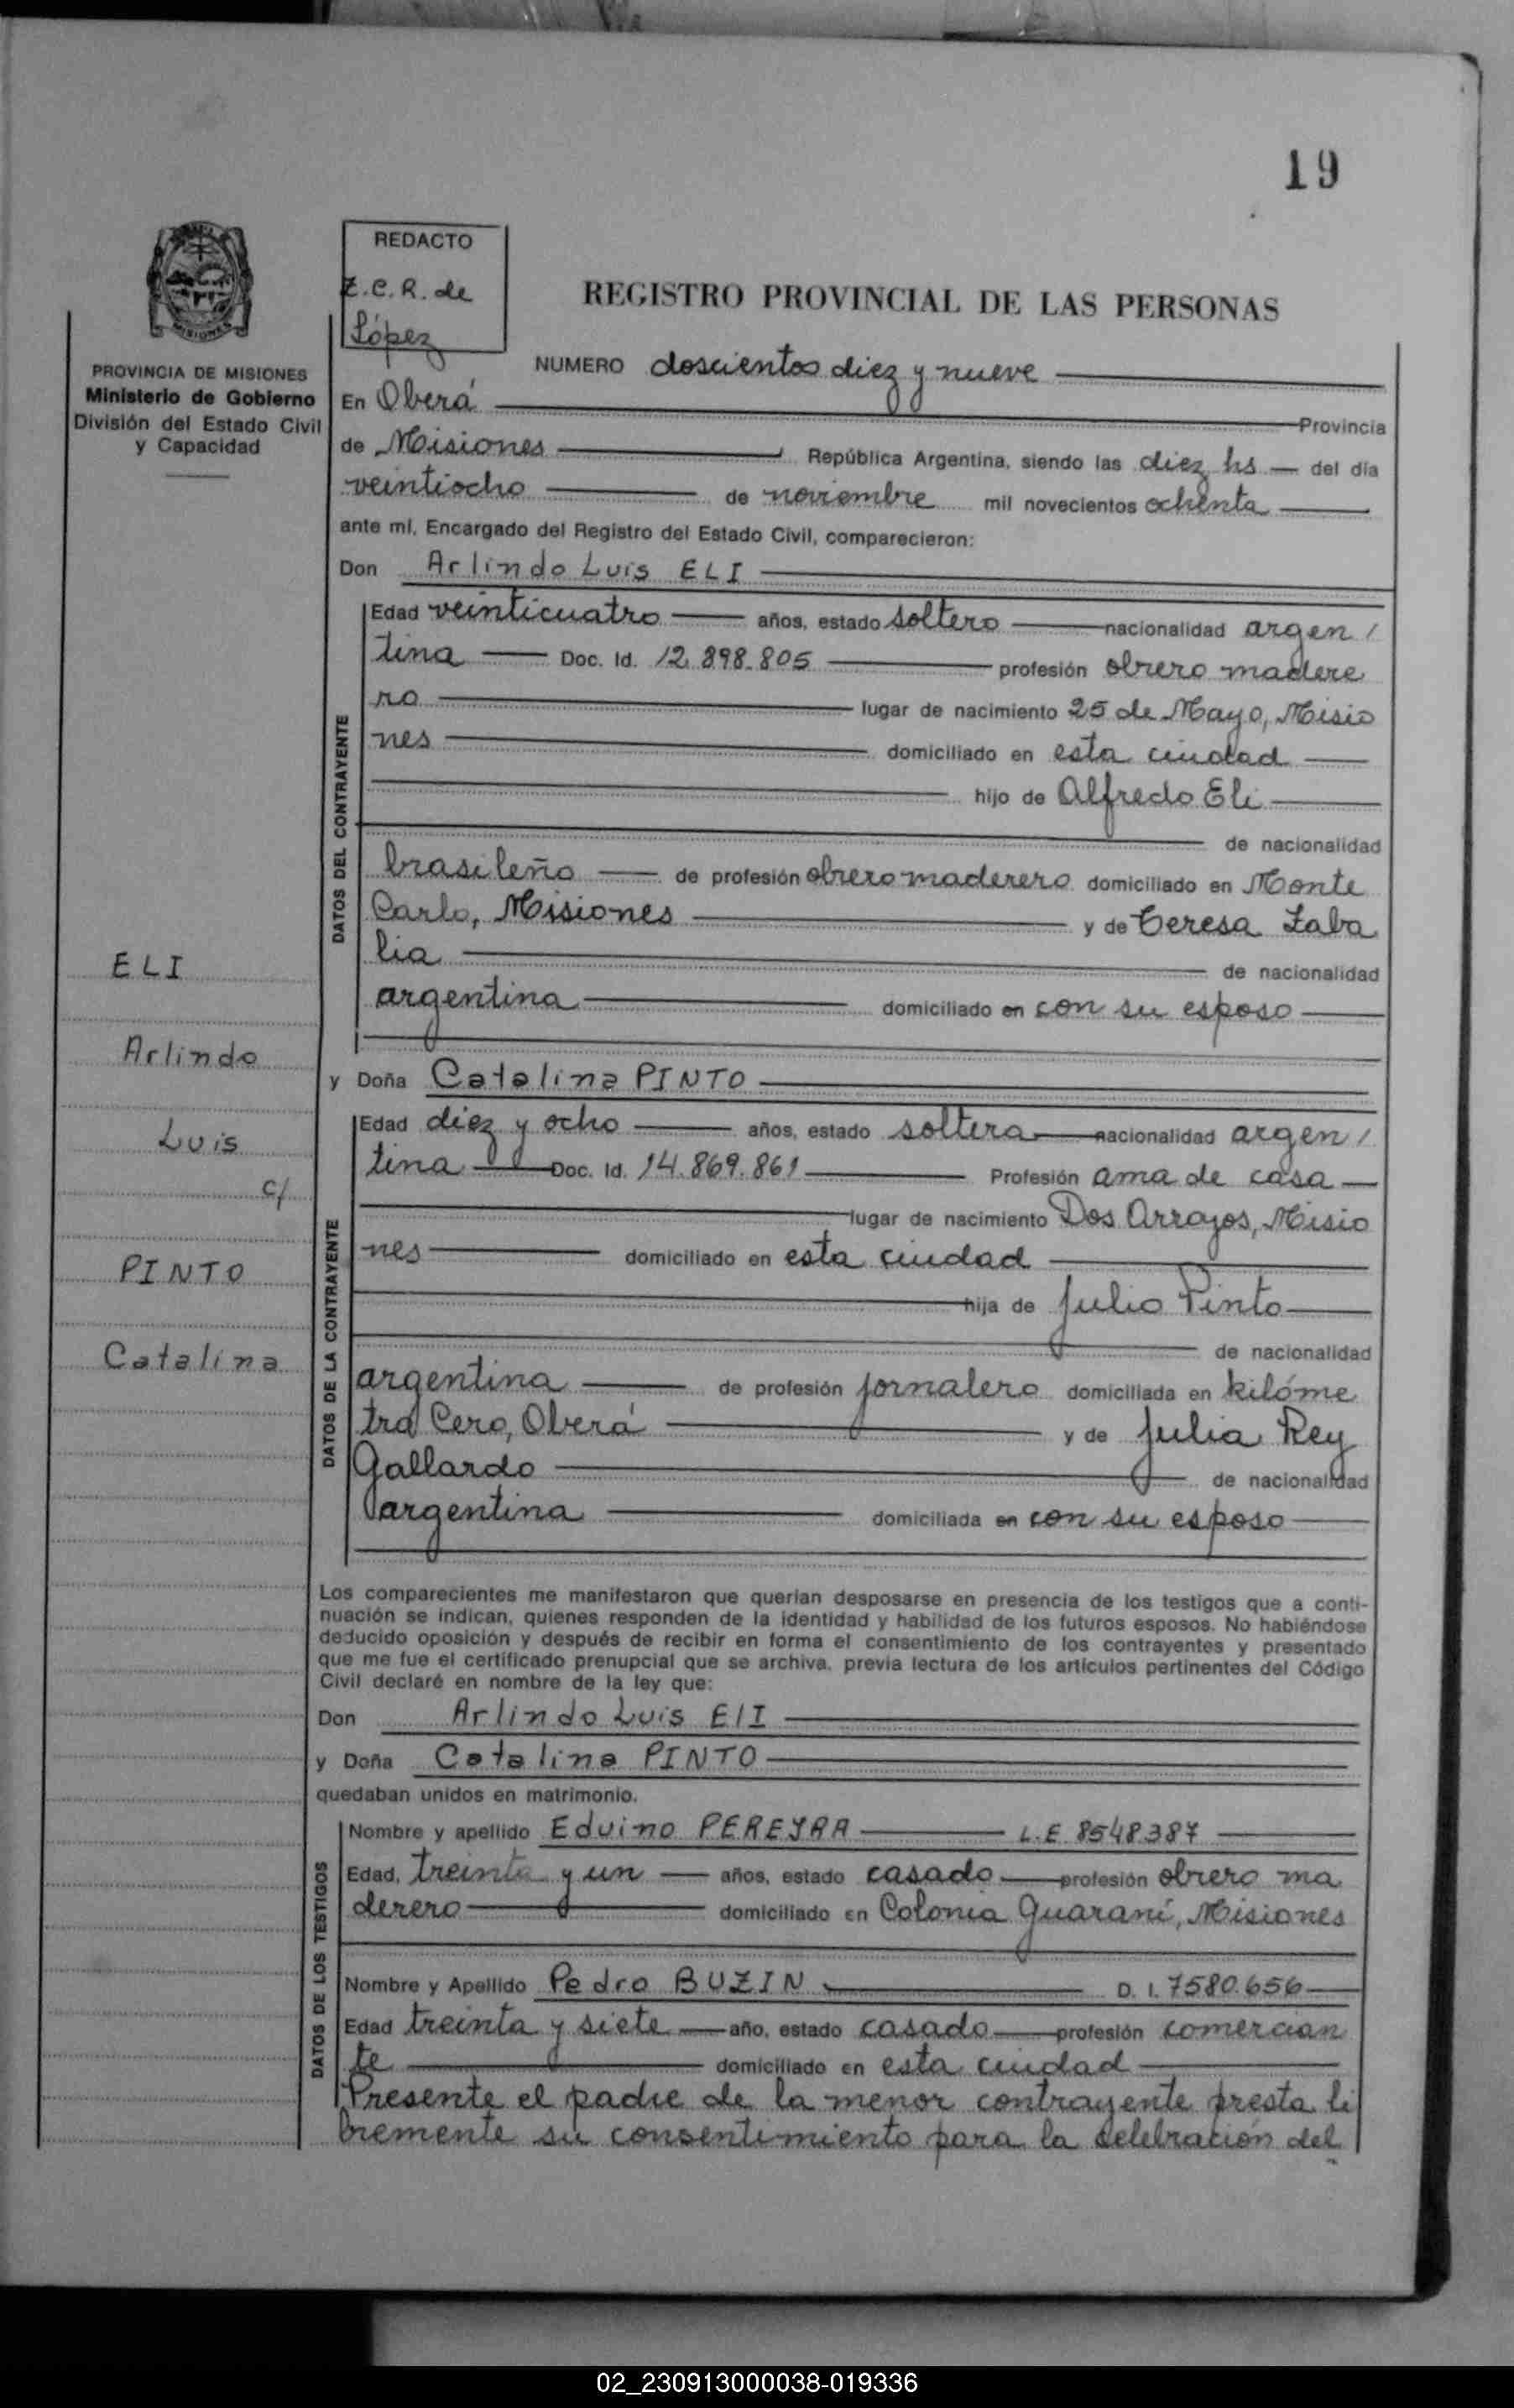 19
REDACTO
Z.C.R. de
López
REGISTRO PROVINCIAL DE LAS PERSONAS
MISIONES
PROVINCIA DE MISIONES
Ministerio de Gobierno
División del Estado Civil
y Capacidad
NUMERO doscientos diez y nueve
En Oberá Provincia
de Misiones República Argentina, siendo las diez hs del día
veintiocho de noviembre mil novecientos ochenta
ante mí, Encargado del Registro del Estado Civil, comparecieron:
Don Arlindo Luis ELI
DATOS DEL CONTRAYENTE
Edad veinticuatro años, estado soltero nacionalidad argen/
tina Doc. Id. 12.898.805 profesión obrero madere
ro lugar de nacimiento 25 de Mayo, Misio
nes domiciliado en esta ciudad
hijo de Alfredo Eli
de nacionalidad
brasileño de profesión obrero maderero domiciliado en Monte
Carlo, Misiones y de Teresa Zaba
lia de nacionalidad
argentina domiciliado en con su esposo
y Doña Catalina PINTO
DATOS DE LA CONTRAYENTE
Edad diez y ocho años, estado soltera nacionalidad argen/
tina Doc. Id. 14.869.861 Profesión ama de casa
lugar de nacimiento Dos Arroyos, Misio
nes domiciliado en esta ciudad
hija de Julio Pinto
de nacionalidad
argentina de profesión jornalero domiciliada en kilóme
tro Cero, Oberá y de Julia Rey
Gallardo de nacionalidad
argentina domiciliada en con su esposo
ELI
Arlindo
Luis
c/
PINTO
Catalina
Los comparecientes me manifestaron que querían desposarse en presencia de los testigos que a conti-
nuación se indican, quienes responden de la identidad y habilidad de los futuros esposos. No habiéndose
deducido oposición y después de recibir en forma el consentimiento de los contrayentes y presentado
que me fue el certificado prenupcial que se archiva, previa lectura de los artículos pertinentes del Código
Civil declaré en nombre de la ley que:
Don Arlindo Luis ElI
y Doña Catalina PINTO
quedaban unidos en matrimonio.
DATOS DE LOS TESTIGOS
Nombre y apellido Eduino PEREYRA L.E. 8548387
Edad, treinta y un años, estado casado profesión obrero ma
derero domiciliado en Colonia Guaraní, Misiones
Nombre y Apellido Pedro BUZIN D. I. 7580.656
Edad treinta y siete año, estado casado profesión comercian
te domiciliado en esta ciudad
Presente el padre de la menor contrayente presta li
bremente su consentimiento para la celebración del
02_230913000038-019336